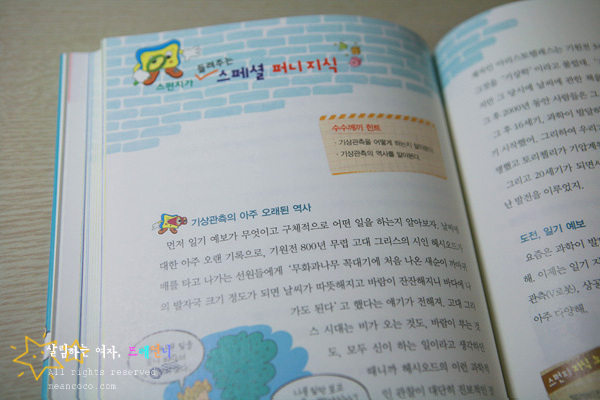 스펀지가 들려주는 스페셜 퍼니지식
수수께끼 힌트
· 기상관측을 어떻게 하는지 알아본다.
· 기상관측의 역사를 알아본다.
기상관측의 아주 오래된 역사
먼저 일기 예보가 무엇이고 구체적으로 어떤 일을 하는지 알아보자. 날씨에
대한 아주 오랜 기록으로, 기원전 800년 무렵 고대 그리스의 시인 헤시오드가
배를 타고 나가는 선원들에게 '무화과나무 꼭대기에 처음 나온 새순이 까마귀
의 발자국 크기 정도가 되면 날씨가 따뜻해지고 바람이 잔잔해지니 바다에 나
가도 된다'고 했다는 얘기가 전해져. 고대 그리
스 시대는 비가 오는 것도, 바람이 부는 것
도, 모두 신이 하는 일이라고 생각하던
때니까 헤시오드의 이런 과학적
인 관찰이 대단히 진보적인
그 후 2000년 동안 사람들은 그
그 후 16세기, 과학이 발달하
기 시작했어. 그리하여 우리
명했고 토리첼리가 기압계
그리고 20세기가 되면서
난 발전을 이루었지.
도전, 일기 예보
요즘은 과학이 발
해. 이제는 일기
관측(V로봇), 상공
아주 다양해.
살림하는 여자,
All rights reserved
meancoco.com